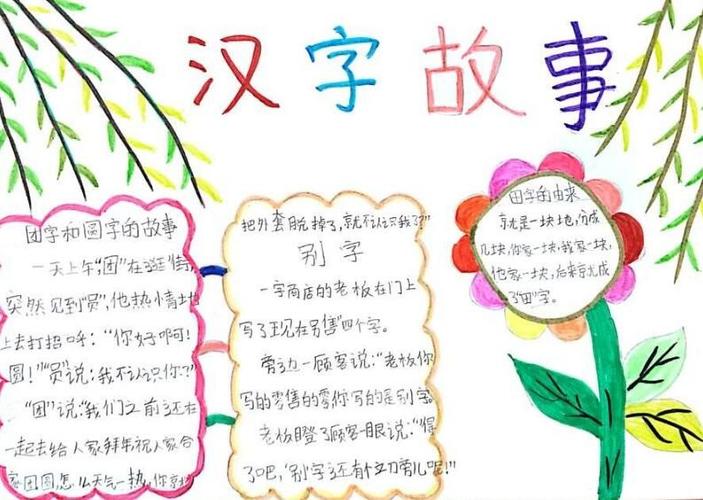 汉字故事
团字和圆字的故事
一天上午，"团"在逛街，
突然见到"员"，他热情地
上去打招呼："你好啊！
圆！"员"说：我不认识你？"
"团"说："我们之前还在
一起去给人家拜年祝人家合
家团圆，怎么天气一热，你就
把外套脱掉了，就不认识我了？"
别字
一字商店的老板在门上
写了"现在另售"四个字。
旁边一顾客说："老板你
写的零售的零你写的是别字。
老板瞪了顾客一眼说："得
了吧，"别"字还有个立刀旁儿呢！"
田字的由来
就是一块地，分成
几块，你家一块，我家一块，
他家一块，后来就成
了"田"字。